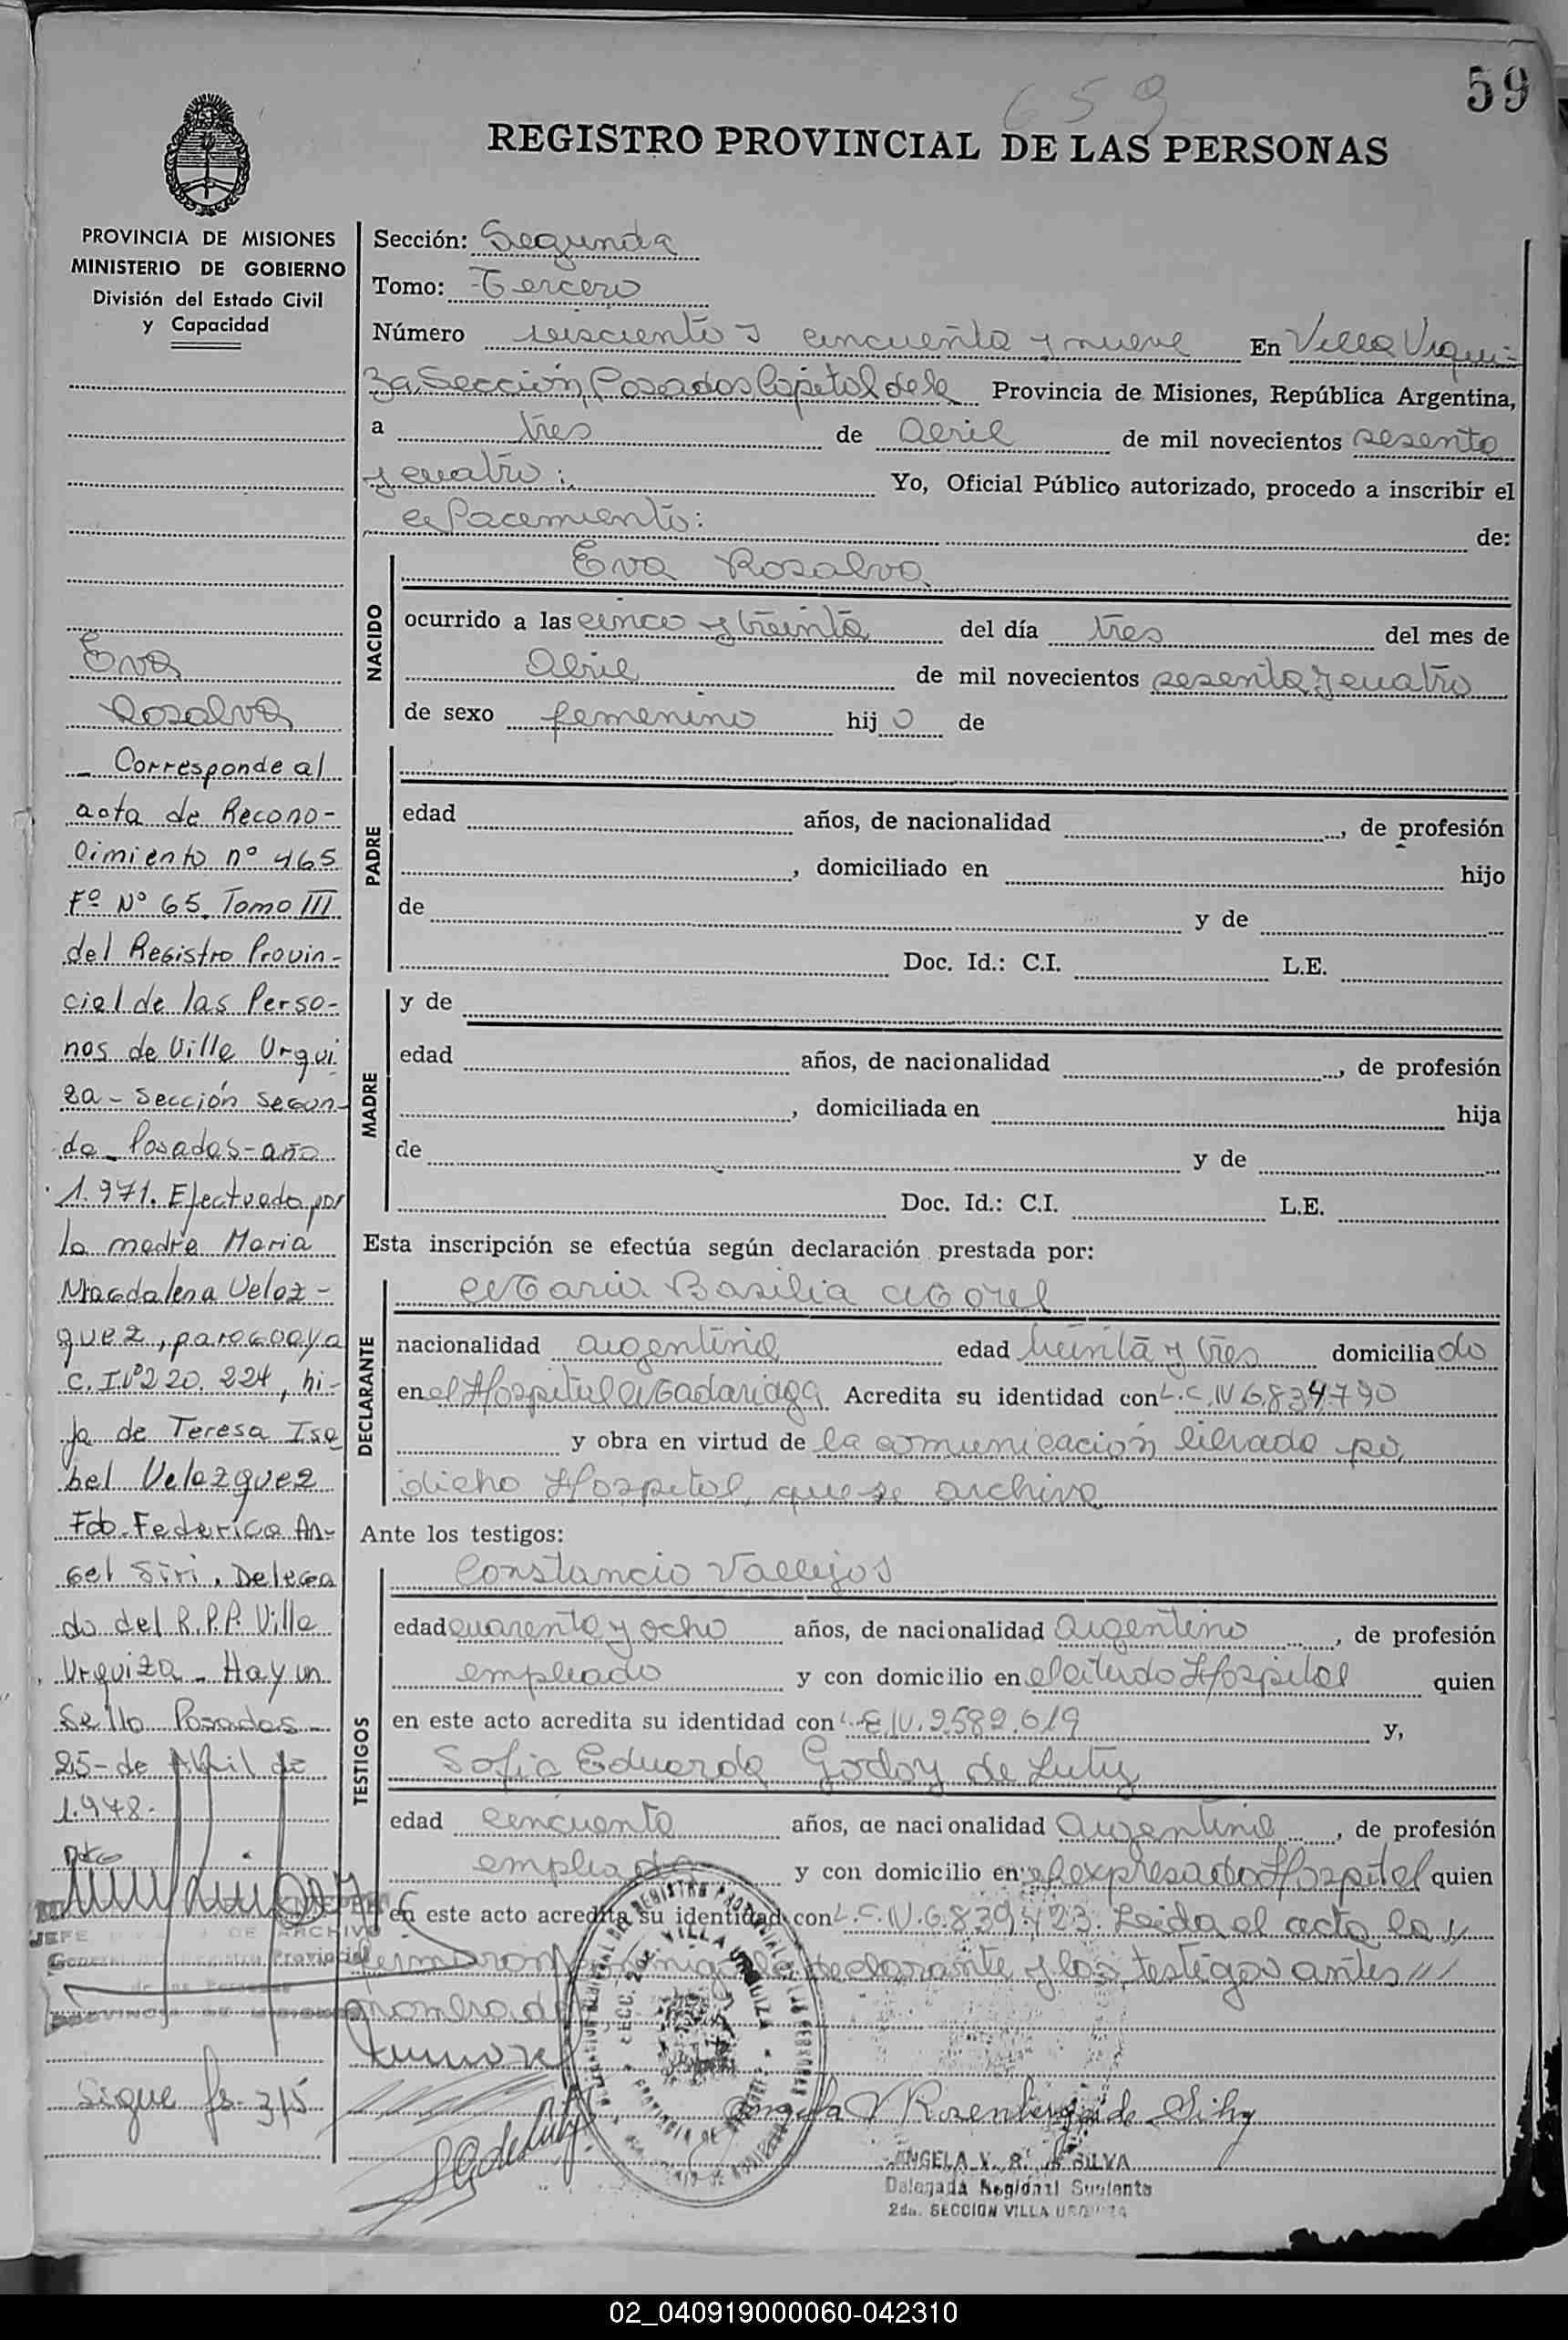 59
659
REGISTRO PROVINCIAL DE LAS PERSONAS
PROVINCIA DE MISIONES
MINISTERIO DE GOBIERNO
División del Estado Civil
y Capacidad
Eva
Rosalva
- Corresponde al
acta de Recono-
cimiento nº 465
Fº Nº 65. Tomo III
del Registro Provin-
cial de las Perso-
nas de Villa Urqui
za - Sección Segun-
da - Posadas - año
1.971. Efectuado por
la madre Maria
Magdalena Velaz-
quez, paraguaya
C.I.Nº 220.224, hi-
ja de Teresa Isa
bel Velazquez
Fdo. Federico An-
gel Siri. Delega
do del R.P.P. Villa
Urquiza - Hay un
Sello Posadas -
25 - de Abril de
1.978.-
JEFE DE ARCHIVO
General Registro Provincial
de las Personas
PROVINCIA DE MISIONES
Sigue fs. 315
Sección: Segunda
Tomo: Tercero
Número seiscientos cincuenta y nueve En Villa Urqui-
za Sección, Posadas Capital de la Provincia de Misiones, República Argentina,
a tres de Abril de mil novecientos sesenta
y cuatro: Yo, Oficial Público autorizado, procedo a inscribir el
Nacimiento: de:
NACIDO
Eva Rosalva
ocurrido a las cinco y treinta del día tres del mes de
Abril de mil novecientos sesenta y cuatro
de sexo femenino hij a de
PADRE
edad años, de nacionalidad , de profesión
, domiciliado en hijo
de y de
Doc. Id.: C.I. L.E.
MADRE
y de
edad años, de nacionalidad , de profesión
, domiciliada en hija
de y de
Doc. Id.: C.I. L.E.
Esta inscripción se efectúa según declaración prestada por:
DECLARANTE
Maria Basilia Morel
nacionalidad argentina edad treinta y tres domiciliado
en el Hospital Madariaga Acredita su identidad con L.C. Nº 6.834.790
y obra en virtud de la comunicación librada por
dicho Hospital, que se archiva
Ante los testigos:
TESTIGOS
Constancio Vallejos
edad cuarenta y ocho años, de nacionalidad Argentino , de profesión
empleado y con domicilio en el citado Hospital quien
en este acto acredita su identidad con L.E. Nº. 2.582.619 y,
Sofia Eduarda Godoy de Lutz
edad cincuenta años, de nacionalidad Argentina , de profesión
empleada y con domicilio en el expresado Hospital quien
en este acto acredita su identidad con L.C. Nº. 6.839.423. Leida el acta la //
firmaron conmigo la declarante y los testigos antes ///
nombrado
VILLA URQUIZA
Angela V Rosenberg de Silva
ANGELA V. R. de SILVA
Delegada Regional Suplente
2da. SECCION VILLA URQUIZA
02_040919000060-042310